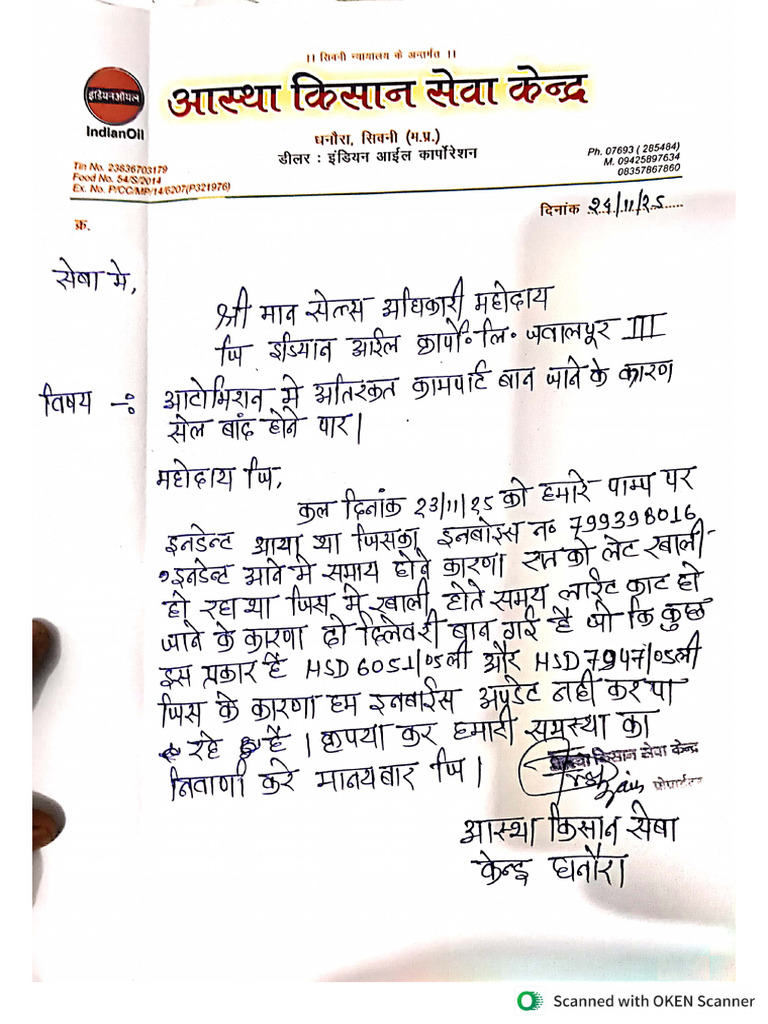 ।। सिवनी न्यायालय के अन्तर्गत ।।
इंडियनऑयल
IndianOil
आस्था किसान सेवा केन्द्र
धनौरा, सिवनी (म.प्र.)
डीलर : इंडियन आईल कार्पोरेशन
Ph. 07693 ( 285484)
M. 09425897634
08357867860
Tin No. 23836703179
Food No. 54/S/2014
Ex. No. P/CC/MP/14/6207(P321976)
दिनांक 24/11/25
क्र.
सेबा मे,
श्री मान सेल्स अधिकारी महोदाय
जि इडियान आईल कार्पो. लि. जवालपूर III
विषय -: आटोमिशन मे अतिरकत कामपार्ट बान जाने के कारण
सेल बांद होने पार।
महोदाय जि,
कल दिनांक 23/11/25 को हमारे पाम्प पर
इनडेन्ट आया था जिसका इनबोइस न० 799398016
इनडेन्ट आने मे समाय होने कारणा रात को लेट खाली
हो रहा था जिस मे खाली होते समय लाईट काट हो
जाने के कारणा दो दिलेवरी बान गई है जो कि कुछ
इस प्रकार है HSD 6051/05ली और HSD 7947/05ली
जिस के कारणा हम इनबाईस अपडेट नही कर पा
रहे है । कृपया कर हमारी समस्या का
निवाणी करे मानयबार जि ।
आस्था किसान सेवा केन्द्र
प्रोपाईटर
आस्था किसान सेबा
केन्द्र धनौरा
Scanned with OKEN Scanner